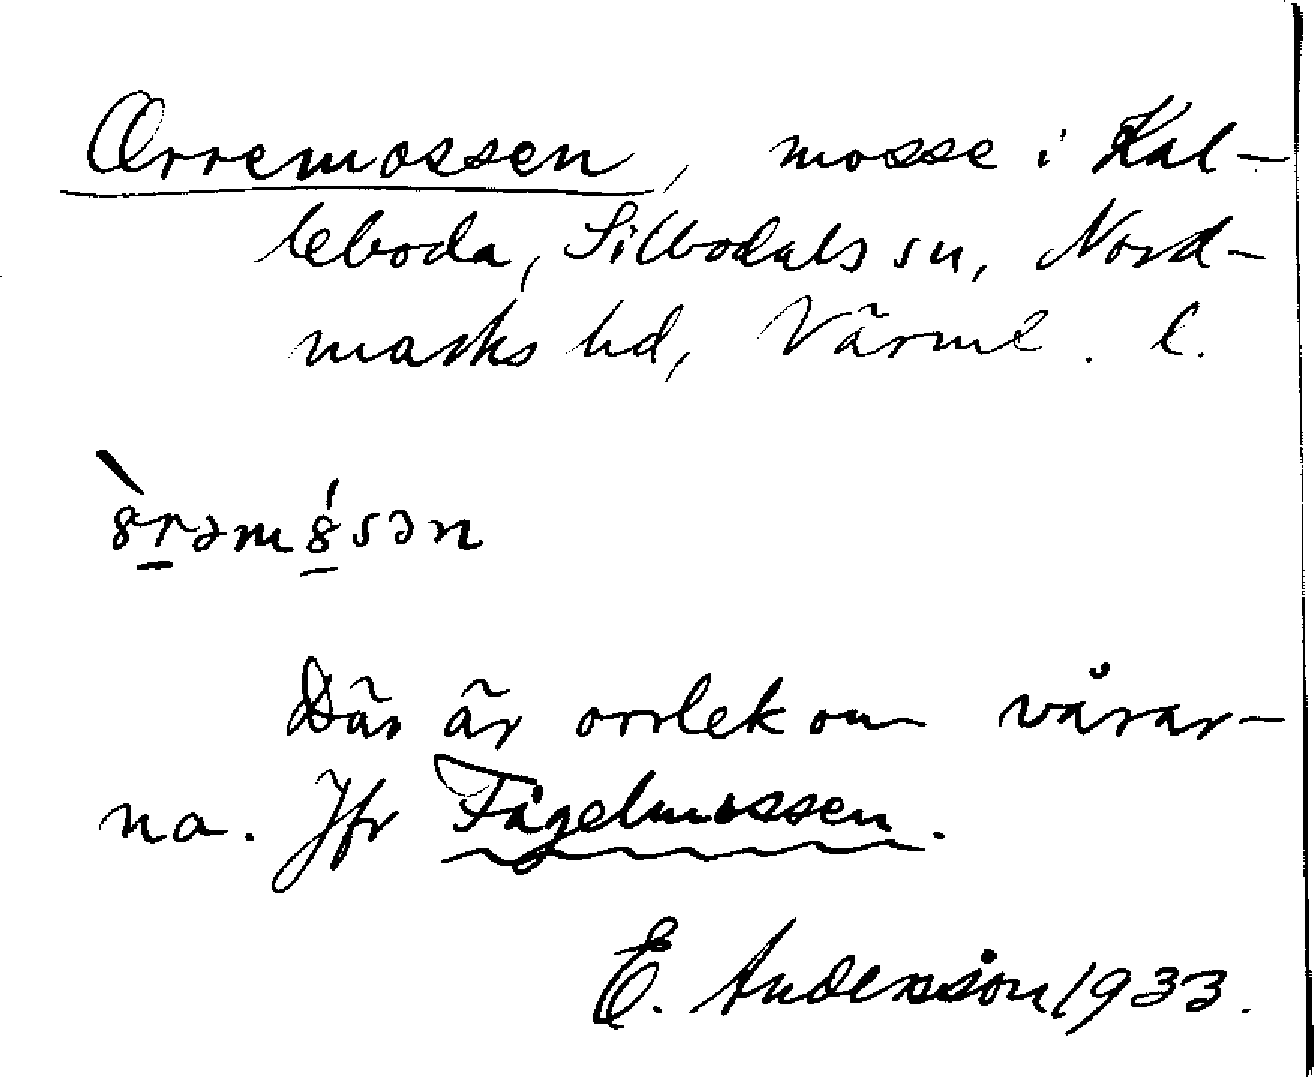 Orremossen, mosse i Kal-
leboda, Silbodals sn, Nord-
marks hd, Värml. l.
Där är orrlek om vårar-
na. Jfr Fågelmossen.
E. Andersson 1933.